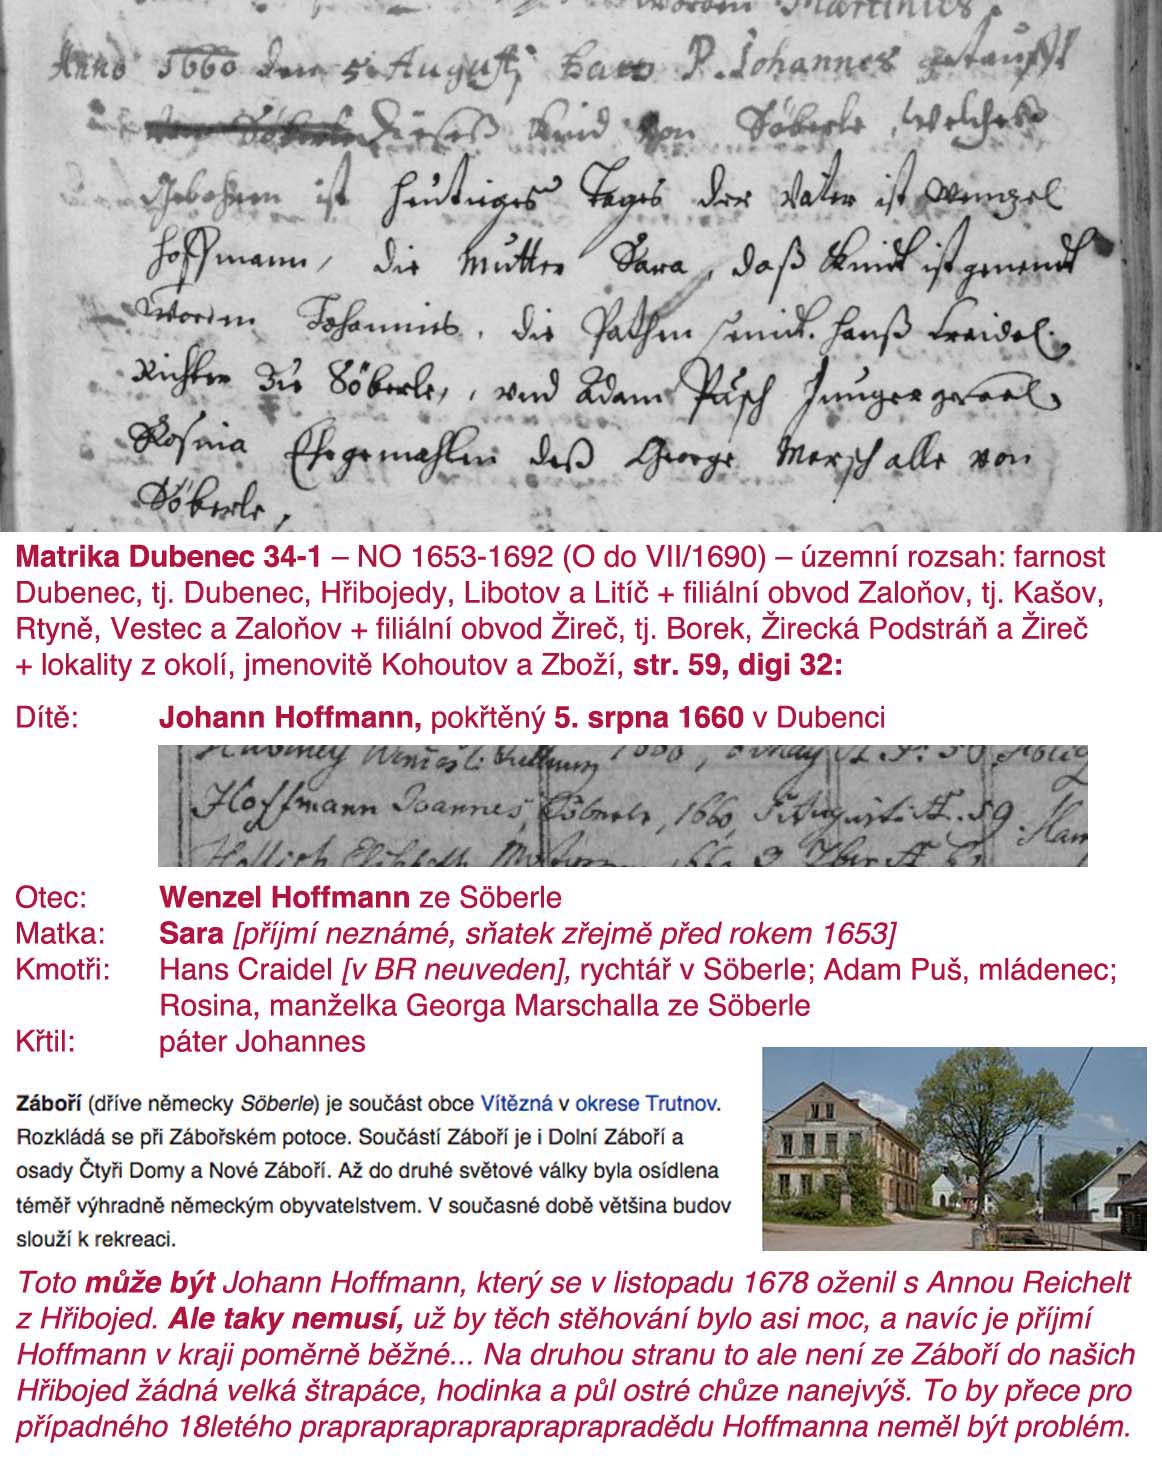 worden Martinus.
Anno 1660 den 5. Augusti hatt P. Johannes getaufft
dieses Kind von Söberle, welches
Gebohren ist heutiges Tages der Vater ist Wenzel
Hoffmann, die Mutter Sara, daß Kindt ist genendt
worden Johannes, die Pathen seindt. Hanß Craidel
Richter zu Söberle, und Adam Püsch Junger gesael
Rosina Ehegemahlin deß George Merschalle von
Söberle,
Matrika Dubenec 34-1 – NO 1653-1692 (O do VII/1690) – územní rozsah: farnost
Dubenec, tj. Dubenec, Hřibojedy, Libotov a Litíč + filiální obvod Zaloňov, tj. Kašov,
Rtyně, Vestec a Zaloňov + filiální obvod Žireč, tj. Borek, Žirecká Podstráň a Žireč
+ lokality z okolí, jmenovitě Kohoutov a Zboží, str. 59, digi 32:
Dítě: Johann Hoffmann, pokřtěný 5. srpna 1660 v Dubenci
Hoffmann Joannes, Söberle, 1660, 5 Augusti A. 59.
Otec: Wenzel Hoffmann ze Söberle
Matka: Sara [příjmí neznámé, sňatek zřejmě před rokem 1653]
Kmotři: Hans Craidel [v BR neuveden], rychtář v Söberle; Adam Puš, mládenec;
Rosina, manželka Georga Marschalla ze Söberle
Křtil: páter Johannes
Záboří (dříve německy Söberle) je součást obce Vítězná v okrese Trutnov.
Rozkládá se při Zábořském potoce. Součástí Záboří je i Dolní Záboří a
osady Čtyři Domy a Nové Záboří. Až do druhé světové války byla osídlena
téměř výhradně německým obyvatelstvem. V současné době většina budov
slouží k rekreaci.
Toto může být Johann Hoffmann, který se v listopadu 1678 oženil s Annou Reichelt
z Hřibojed. Ale taky nemusí, už by těch stěhování bylo asi moc, a navíc je příjmí
Hoffmann v kraji poměrně běžné... Na druhou stranu to ale není ze Záboří do našich
Hřibojed žádná velká štrapáce, hodinka a půl ostré chůze nanejvýš. To by přece pro
případného 18letého praprapraprapraprapraprapradědu Hoffmanna neměl být problém.